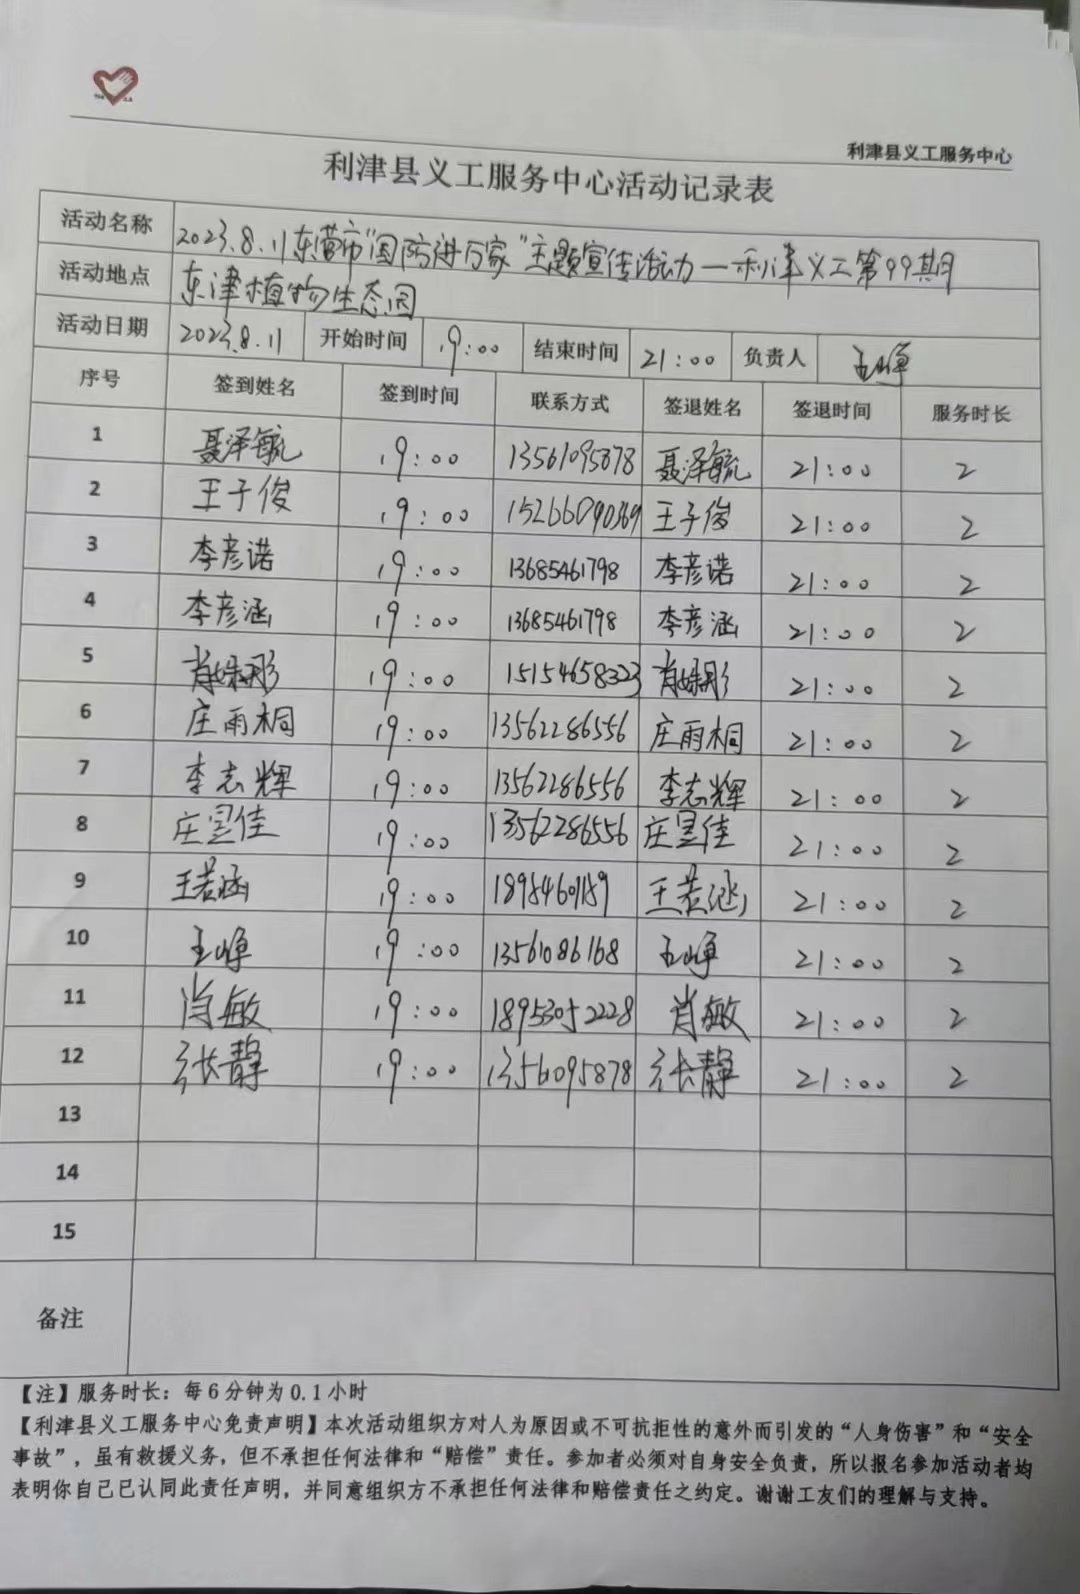 利津县义工服务中心
利津县义工服务中心活动记录表
活动名称 2023.8.11东营市“国防进万家”主题宣传活动—利津义工第99期
活动地点 东津植物生态园
活动日期 2023.8.11 开始时间 19:00 结束时间 21:00 负责人 王峥
序号 签到姓名 签到时间 联系方式 签退姓名 签退时间 服务时长
1 聂泽毓 19:00 13561095878 聂泽毓 21:00 2
2 王子俊 19:00 15266090369 王子俊 21:00 2
3 李彦诺 19:00 13685461798 李彦诺 21:00 2
4 李彦涵 19:00 13685461798 李彦涵 21:00 2
5 肖姝彤 19:00 15154658323 肖姝彤 21:00 2
6 庄雨桐 19:00 13562286556 庄雨桐 21:00 2
7 李志辉 19:00 13562286556 李志辉 21:00 2
8 庄昱佳 19:00 13562286556 庄昱佳 21:00 2
9 王若涵 19:00 18954601189 王若涵 21:00 2
10 王峥 19:00 13561086168 王峥 21:00 2
11 肖敏 19:00 18953052228 肖敏 21:00 2
12 张静 19:00 13561095878 张静 21:00 2
13
14
15
备注
【注】服务时长：每6分钟为0.1小时
【利津县义工服务中心免责声明】本次活动组织方对人为原因或不可抗拒性的意外而引发的“人身伤害”和“安全
事故”，虽有救援义务，但不承担任何法律和“赔偿”责任。参加者必须对自身安全负责，所以报名参加活动者均
表明你自己已认同此责任声明，并同意组织方不承担任何法律和赔偿责任之约定。谢谢工友们的理解与支持。